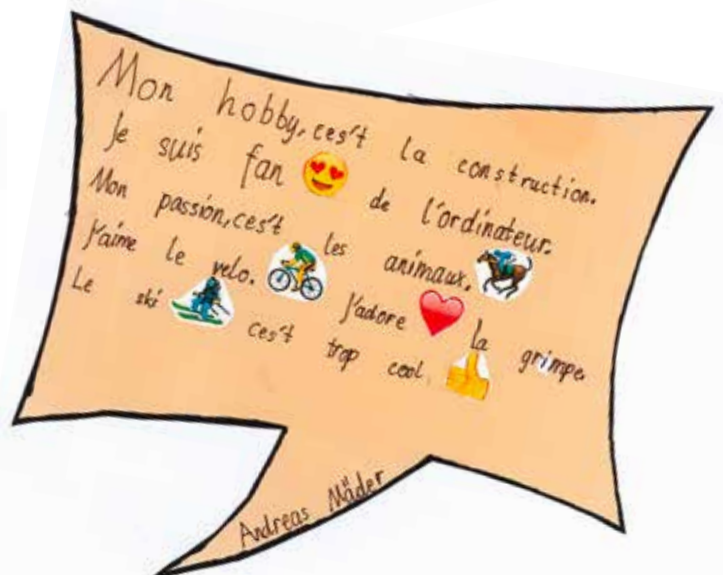 Mon hobby, ces't la construction.
Je suis fan 😍 de l'ordinateur.
Mon passion, ces't les animaux. 🏇
J'aime le velo. 🚴 J'adore ❤️ la grimpe.
Le ski ⛷️ ces't trop cool. 👍
Andreas Mäder